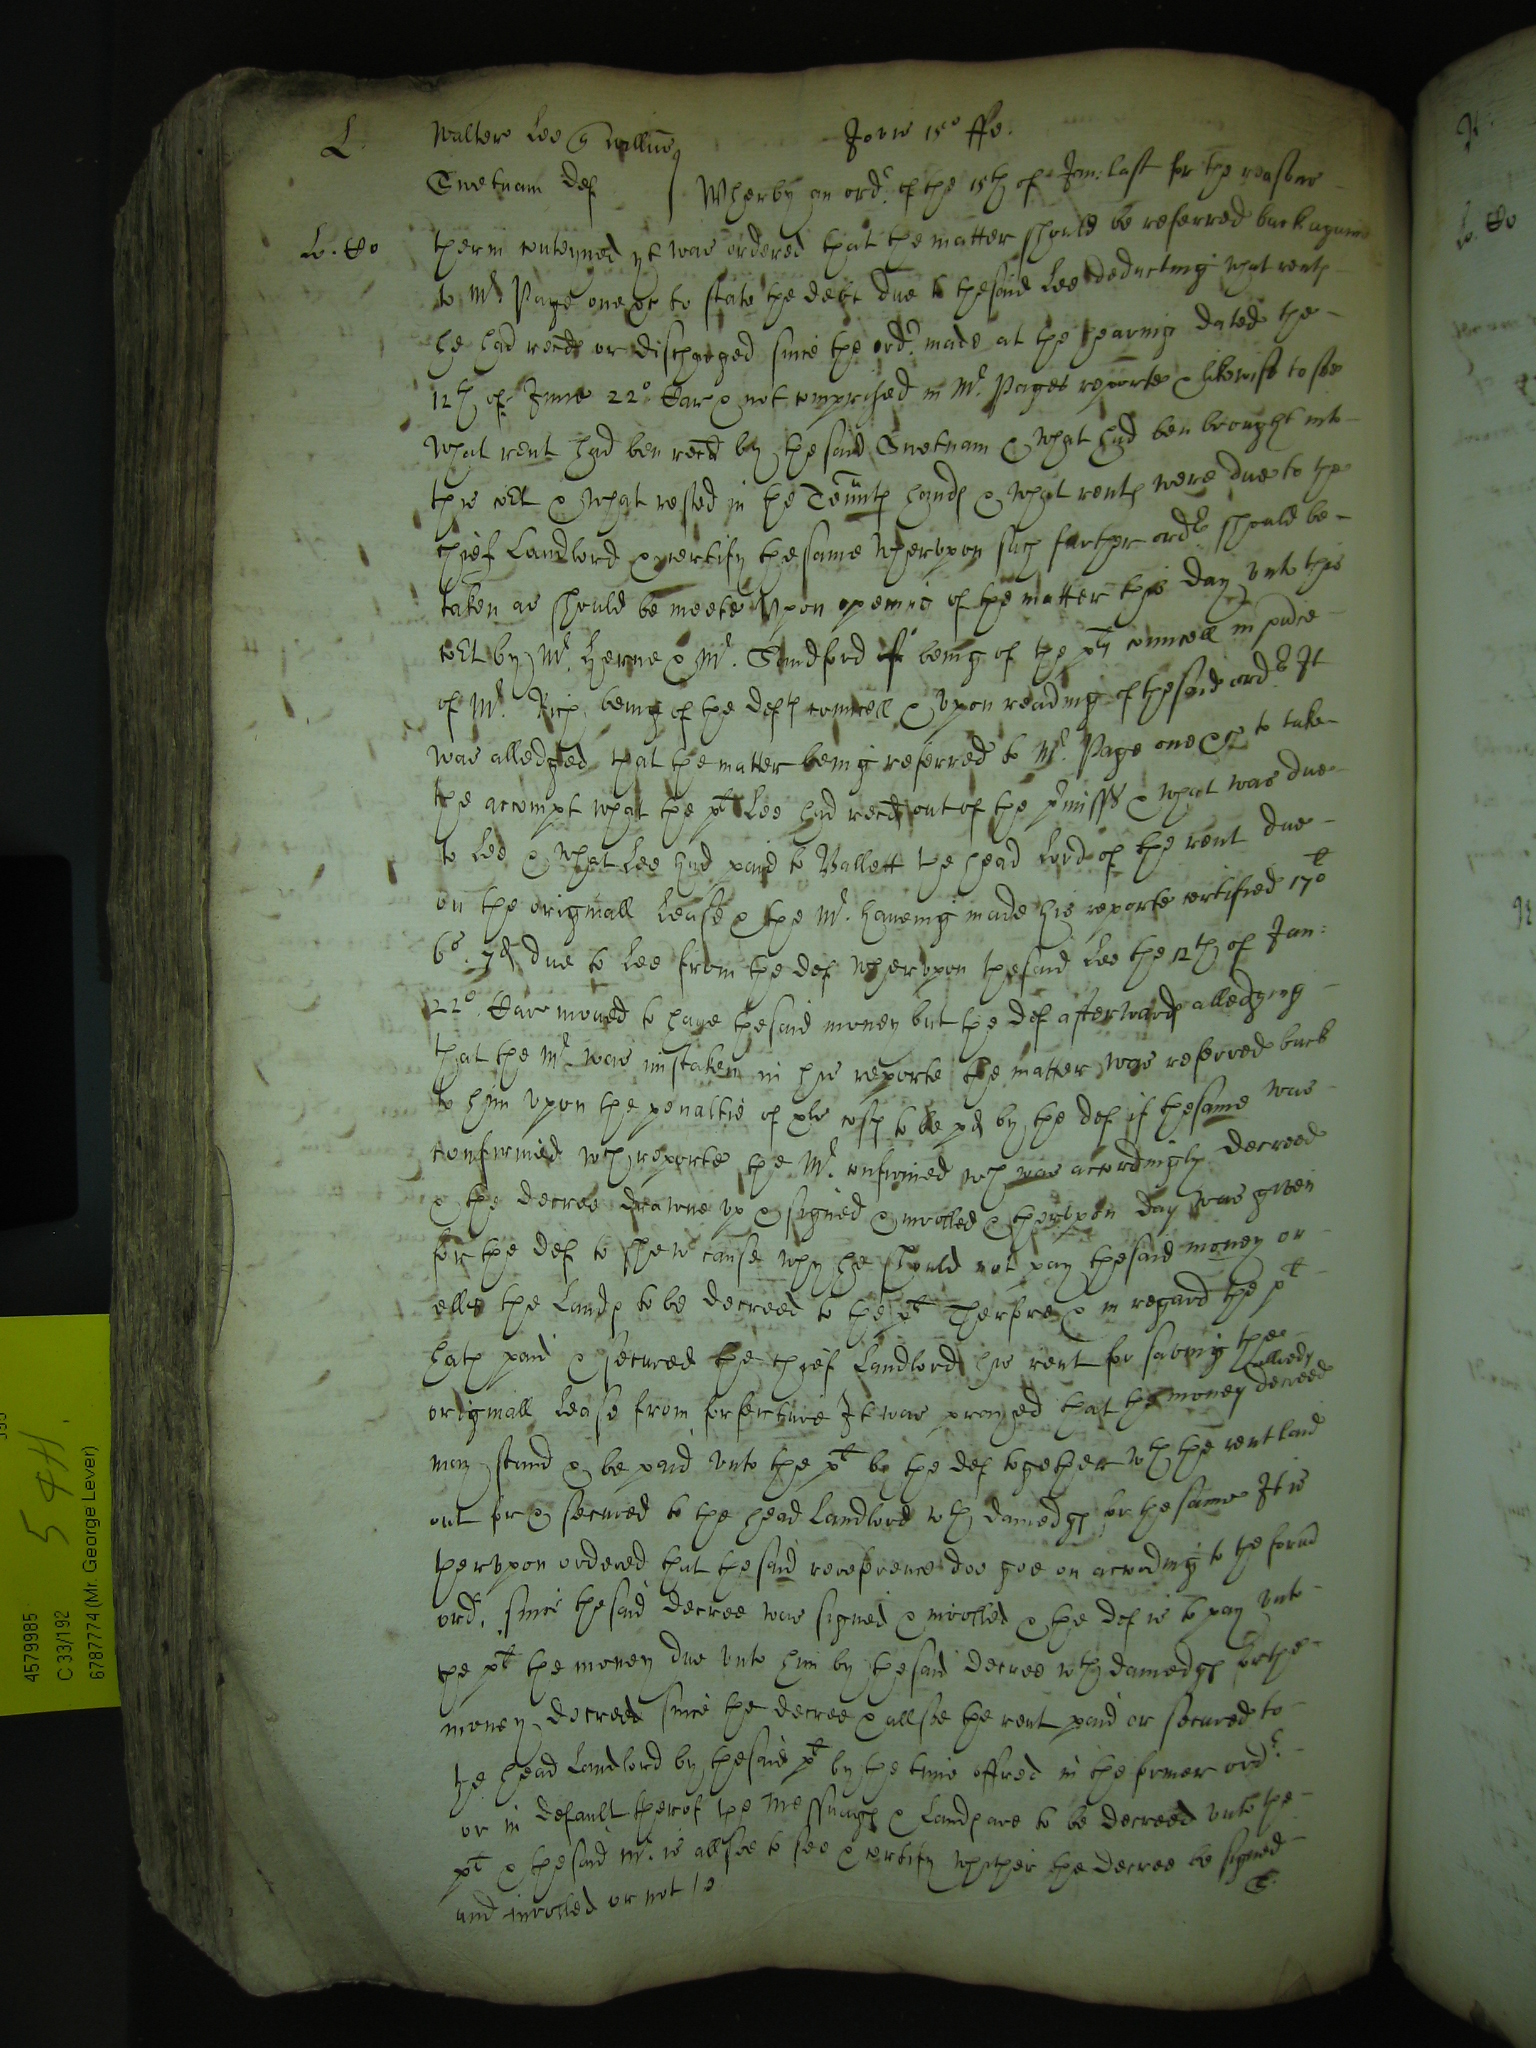 L. Walter Lee q willms Jovis 15o ffe.
Snetnam def Wherby an ord. of the 15th of Jan: last for the reasons
Le. Co therin conteyned yt was ordered that the matter should be referred back againe
to Mr Page one &c to state the debt due to the said Lee deducting what rents
he had recd or dischargd since the ordr made at the hearing dated the
12th of June 22o Car & not comprised in Mr Pages reporte & likewise to see
what rent had ben recd by the said Snetnam & what had ben brought into
this cort & what rested in the Teunts hands & what rents were due to the
chief Landlord & certify the same wherupon such further ordr should be
taken as should be meete Upon opening of the matter this day unto this
cort by Mr. Herne & Mr. Sandford being of the pts councell in psnce
of Mr Rich being of the defts councell & upon reading of the said ordr It
was alledged that the matter being referred to Mr Page one &c to take
the accompt what the plt Lee had recd out of the pmisses & what was due
to Lee & what Lee had paid to Vallett the head Lord of the rent due
on the originall Lease & the Mr. haveing made his reporte certified 170l
6s. 7d due to Lee from the def wherupon the said Lee the 12th of Jan:
22o. Car moved to have the said money but the def afterwards alledging
that the Mr was mistaken in his reporte the matter was referred back
to him upon the penaltie of xls costs to be pd by the def if the same was
confirmed wch reporte the Mr. confirmed wch was accordingly decreed
& the decree drawne up & signed & inrolled & therupon day was given
for the def to shew cause why he should not pay the said money or
ells the Lands to be decreed to the plt Therfore & in regard the plt
hath paid & secured the chief Landlord his rent for saving the
originall Lease from forfecture It was prayed that the money allredy decreed
may stand & be paid unto the plt by the def together wth the rent laid
out for & secured to the head Landlord wth damedgs for the same It is
therupon ordered that the said rereference doe goe on according to the formd
ord. since the said decree was signed & inrolled & the def is to pay unto
the plt the money due unto him by the said decree wth damedgs for the
money decreed since the decree & allsoe the rent paid or secured to
the head Landlord by the said plt by the time offred in the former ordr.
or in default therof the Messuags & Lands are to be decreed unto the
plt & the said Mr. is allsoe to see & certify whither the decree be signed
and inrolled or not
4579985
C 33/192
6787774 (Mr. George Lever)